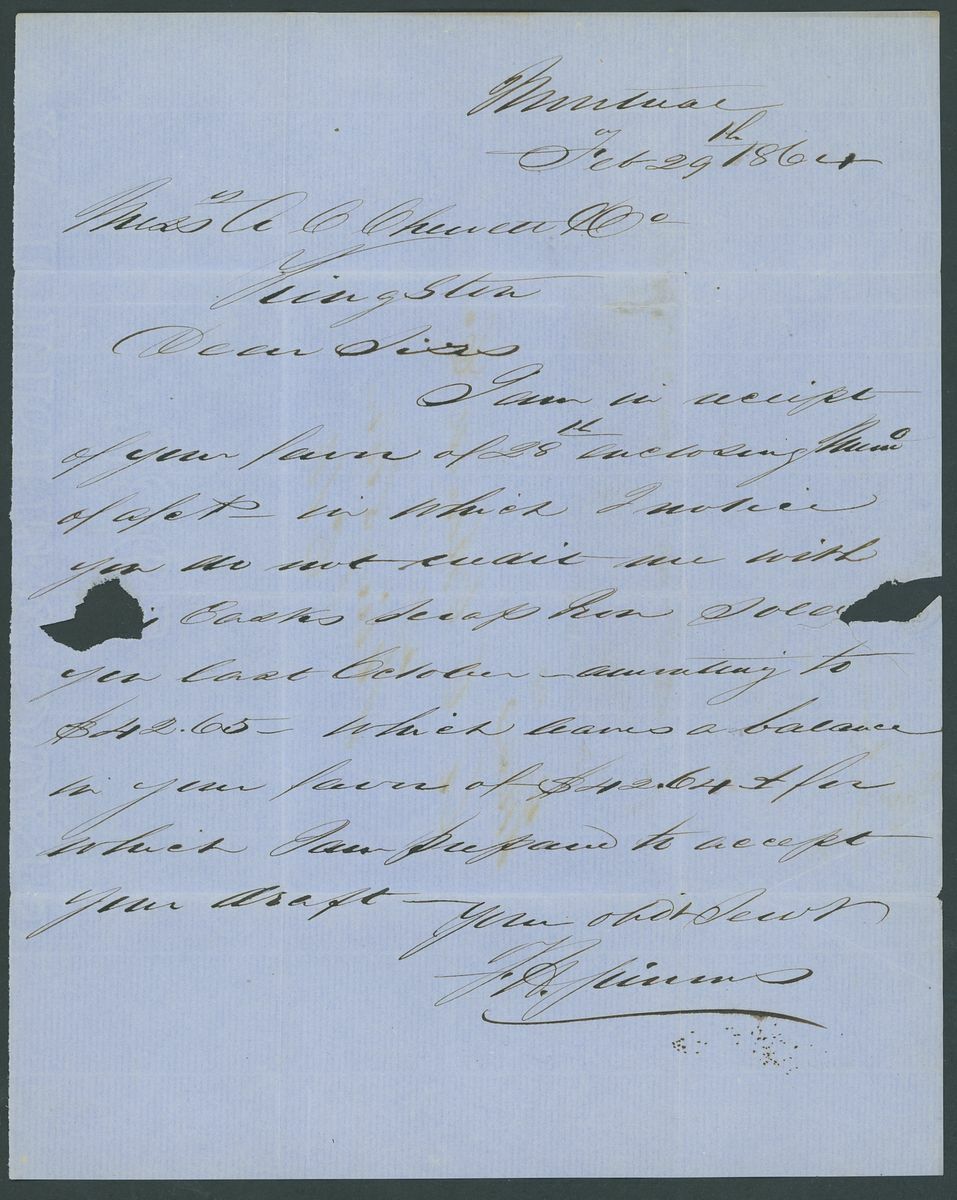 Montreal
Feby 29th 1864
Messrs A C Chewett & Co
Kingston
Dear Sirs
I am in receipt
of your favor of 28th enclosing Memo
of a/ct – in which I notice
you do not credit me with
Casks Scrap Iron Sold
you last October – amounting to
$42.65 – which leaves a balance
in your favor of $42.64 & for
which I am prepared to accept
your draft –
Your obdt Servt
Simms